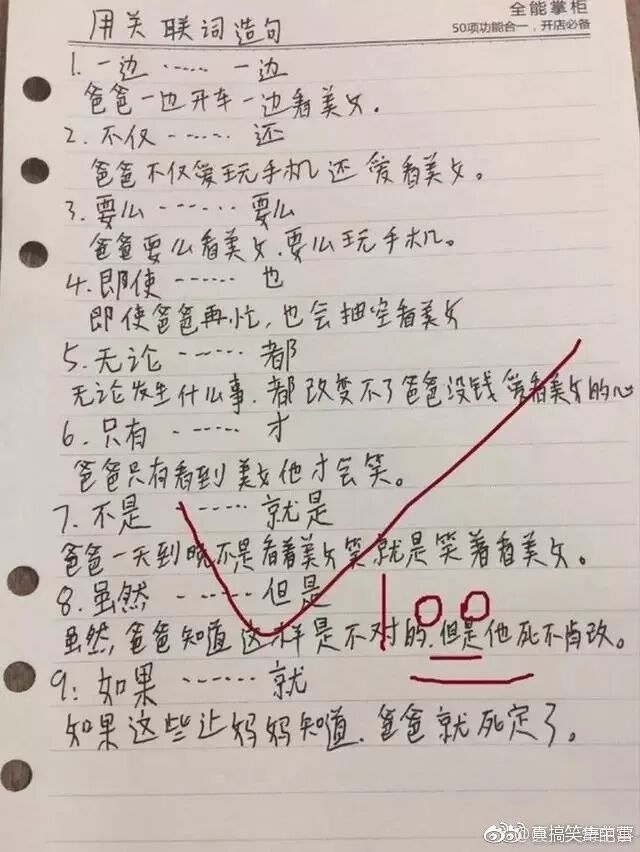 全能掌柜
50项功能合一，开店必备
用关联词造句
1. 一边 …… 一边
爸爸一边开车一边看美女.
2. 不仅 …… 还
爸爸不仅爱玩手机还爱看美女。
3. 要么 …… 要么
爸爸要么看美女.要么玩手机。
4. 即使 …… 也
即使爸爸再忙，也会抽空看美女
5. 无论 …… 都
无论发生什么事.都改变不了爸爸没钱爱看美女的心
6. 只有 …… 才
爸爸只有看到美女他才会笑。
7. 不是 …… 就是
爸爸一天到晚不是看着美女笑就是笑着看美女。
8. 虽然 …… 但是
虽然，爸爸知道这样是不对的.但是他死不肯改。
100
9: 如果 …… 就
如果这些让妈妈知道.爸爸就死定了。